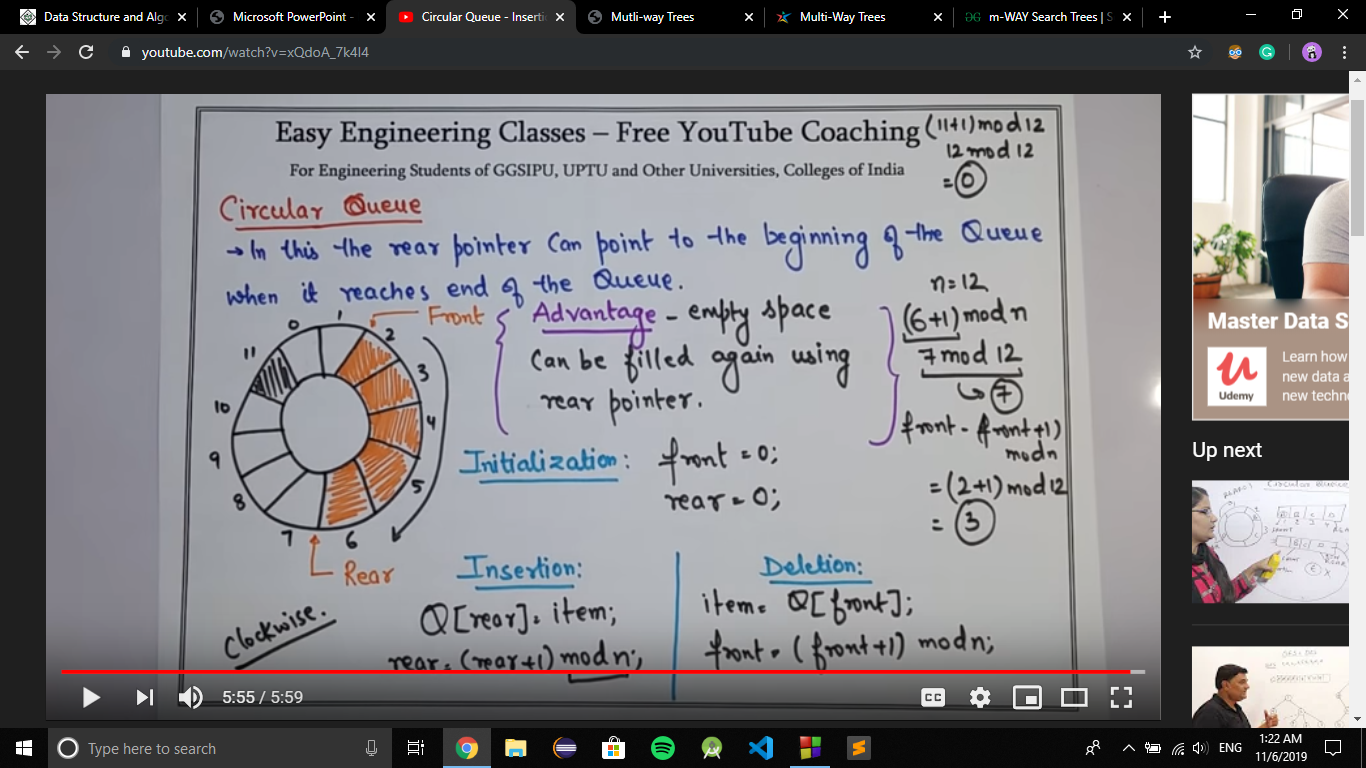 Data Structure and Algo
Microsoft PowerPoint -
Circular Queue - Inserti
Mutli-way Trees
Multi-Way Trees
m-WAY Search Trees | S
youtube.com/watch?v=xQdoA_7k4I4
Easy Engineering Classes – Free YouTube Coaching
For Engineering Students of GGSIPU, UPTU and Other Universities, Colleges of India
(11+1) mod 12
12 mod 12
= 0
Circular Queue
→ In this the rear pointer Can point to the beginning of the Queue
when it reaches end of the Queue.
Front
0
1
2
3
4
5
6
7
8
9
10
11
Rear
Clockwise.
Advantage - empty space
Can be filled again using
rear pointer.
n=12
(6+1) mod n
7 mod 12
7
front - (front+1)
mod n
= (2+1) mod 12
= 3
Initialization: front = 0;
rear = 0;
Insertion:
Q[rear] = item;
rear = (rear+1) mod n;
Deletion:
item = Q[front];
front = (front+1) mod n;
5:55 / 5:59
CC
Master Data S
Udemy
Learn how
new data a
new techn
Up next
Type here to search
ENG
1:22 AM
11/6/2019